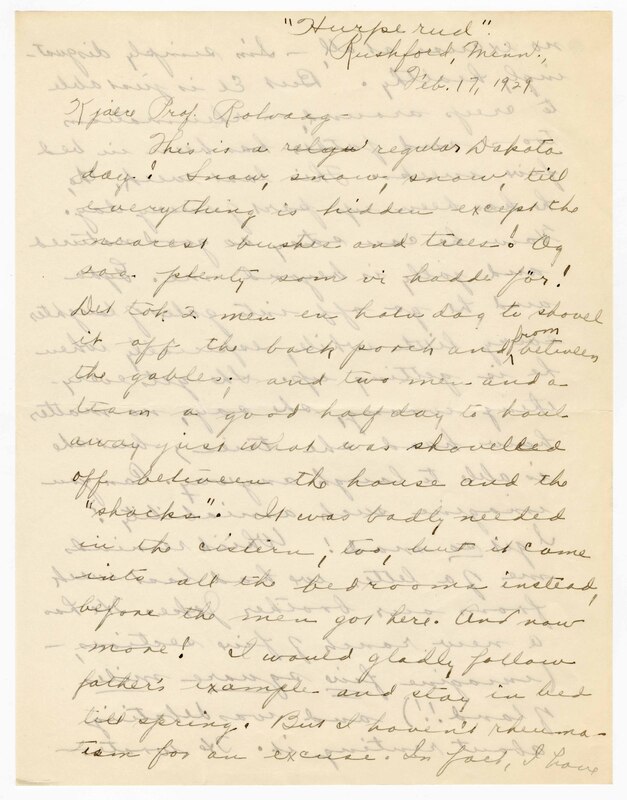 "Hurperud".
Rushford, Minn.,
Feb. 17, 1929
Kjære Prof. Rolvaag—
This is a regular Dakota
day! Snow, snow, snow, till
everything is hidden except the
nearest bushes and trees! Og
saa plenty som vi hadde för!
Det tok 2 men en halv dag to shovel
it off the back porch and from between
the gables; and two men and a
team a good half day to haul
away just what was shovelled
off between the house and the
"shacks". It was badly needed
in the cistern, too, but it came
into all the bedrooms instead,
before the men got here. And now
more! I would gladly follow
father's example and stay in bed
till spring. But I haven't rheuma-
tism for an excuse. In fact, I have